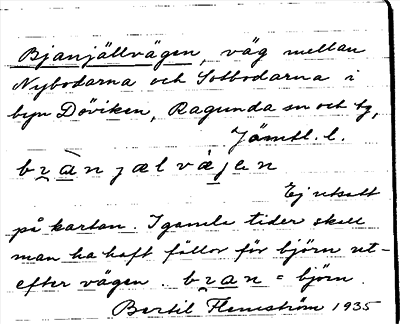 Bjanjällvägen, väg mellan
Nybodarna och Sotbodarna i
byn Döviken, Ragunda sn och tg,
Jämtl. l.
Ej utsatt
på kartan. I gamla tider skall
man ha haft fällor för björn ut-
efter vägen. = björn.
Bertil Flemström 1935